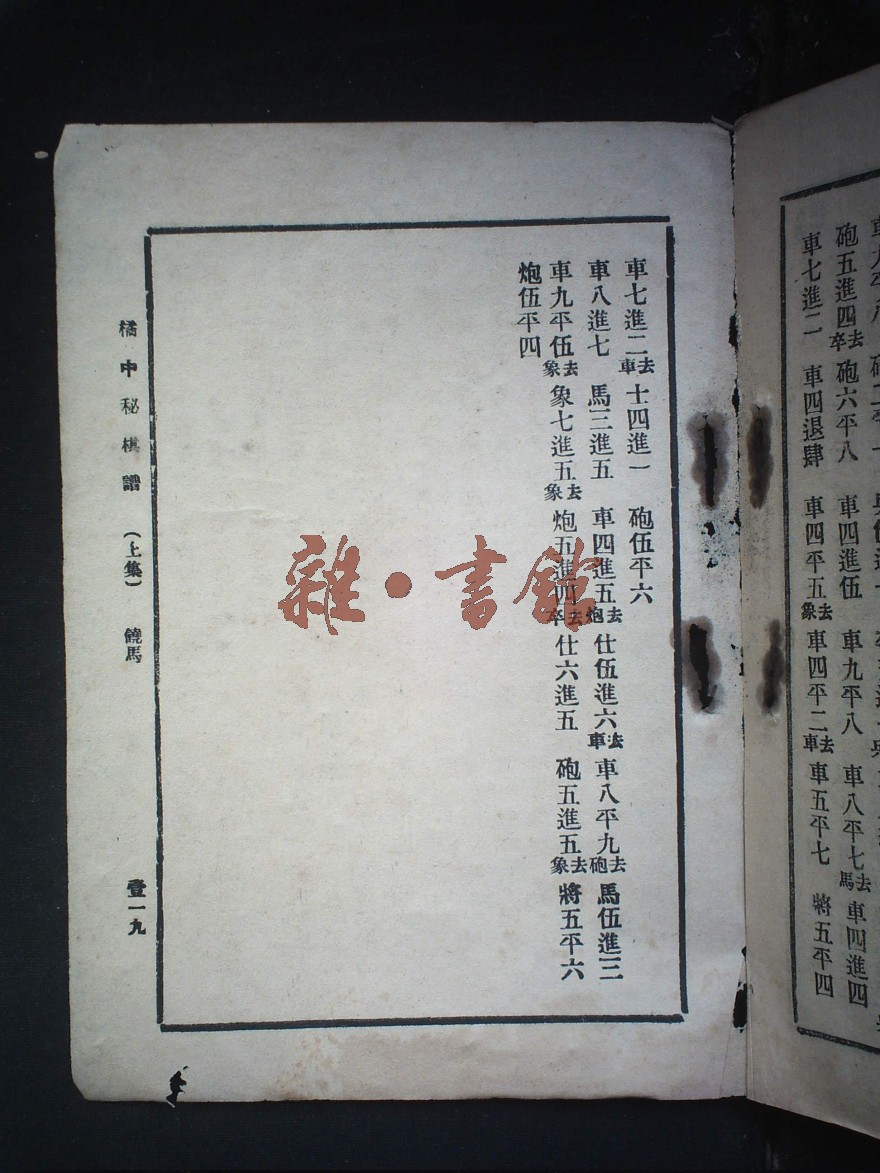 車七進二 去車 士四進一 砲伍平六
車八進七 馬三進五 車四進五 去炮 仕伍進六 去車 車八平九 去砲 馬伍進三
車九平伍 去象 象七進五 去象 炮五進四 去卒 仕六進五 砲五進五 去象 將五平六
炮伍平四
橘中秘棋譜 (上集) 饒馬 壹一九
砲五進四 去卒 砲六平八 車四進伍 車九平八 車八平七 去馬 車四進四
車七進二 車四退肆 車四平五 去象 車四平二 去車 車五平七 將五平四
雜·書館